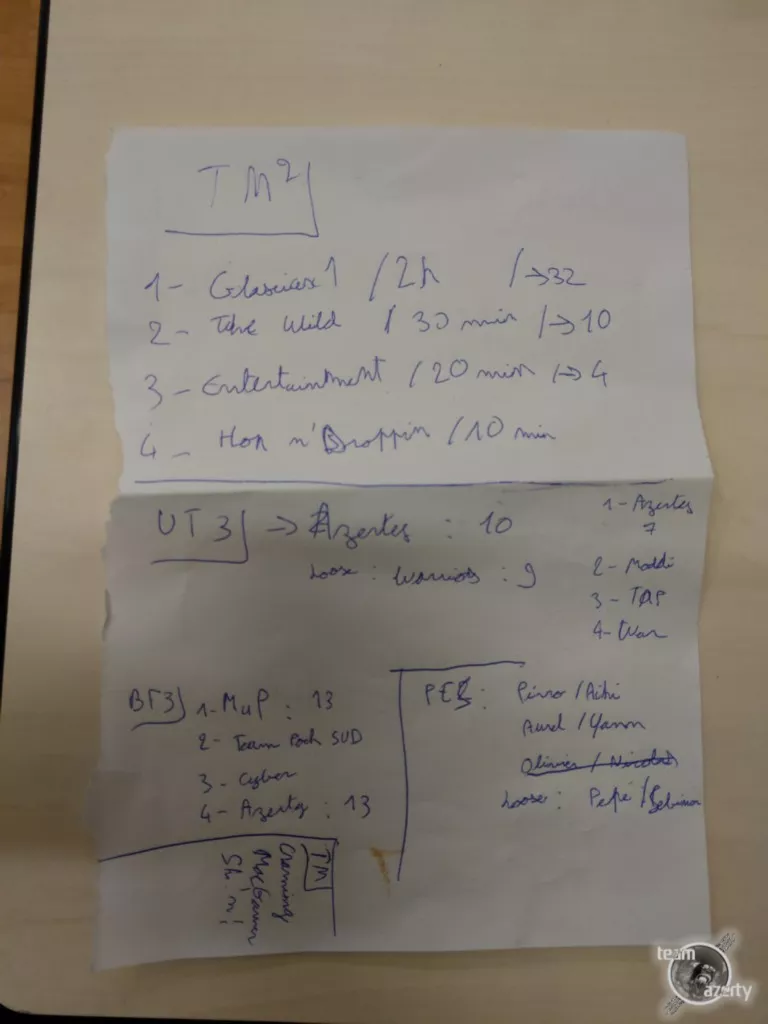 TM²
1- /2h /→32
2- The Wild /30 min /→10
3- Entertainment /20 min /→4
4- Hop n'Droppin /10 min
UT3 → Azertes : 10
Loose : Warrios : 9
1- Azertes
7
2- Moddi
3-
4- War
BT3
1- MuP : 13
2- Team Poch SUD
3- Cyber
4- Azerty : 13
PES : Pierro /
Aurel / Yann
Olivier / Nicolas
Loose : Pepe /
TM
Creaming
MacGanner
Sh'n!
team
azerty